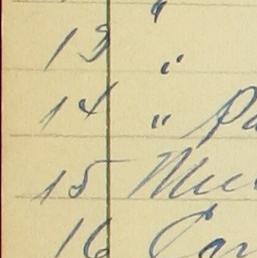 "
13 "
14 " Pa
15
16 Car